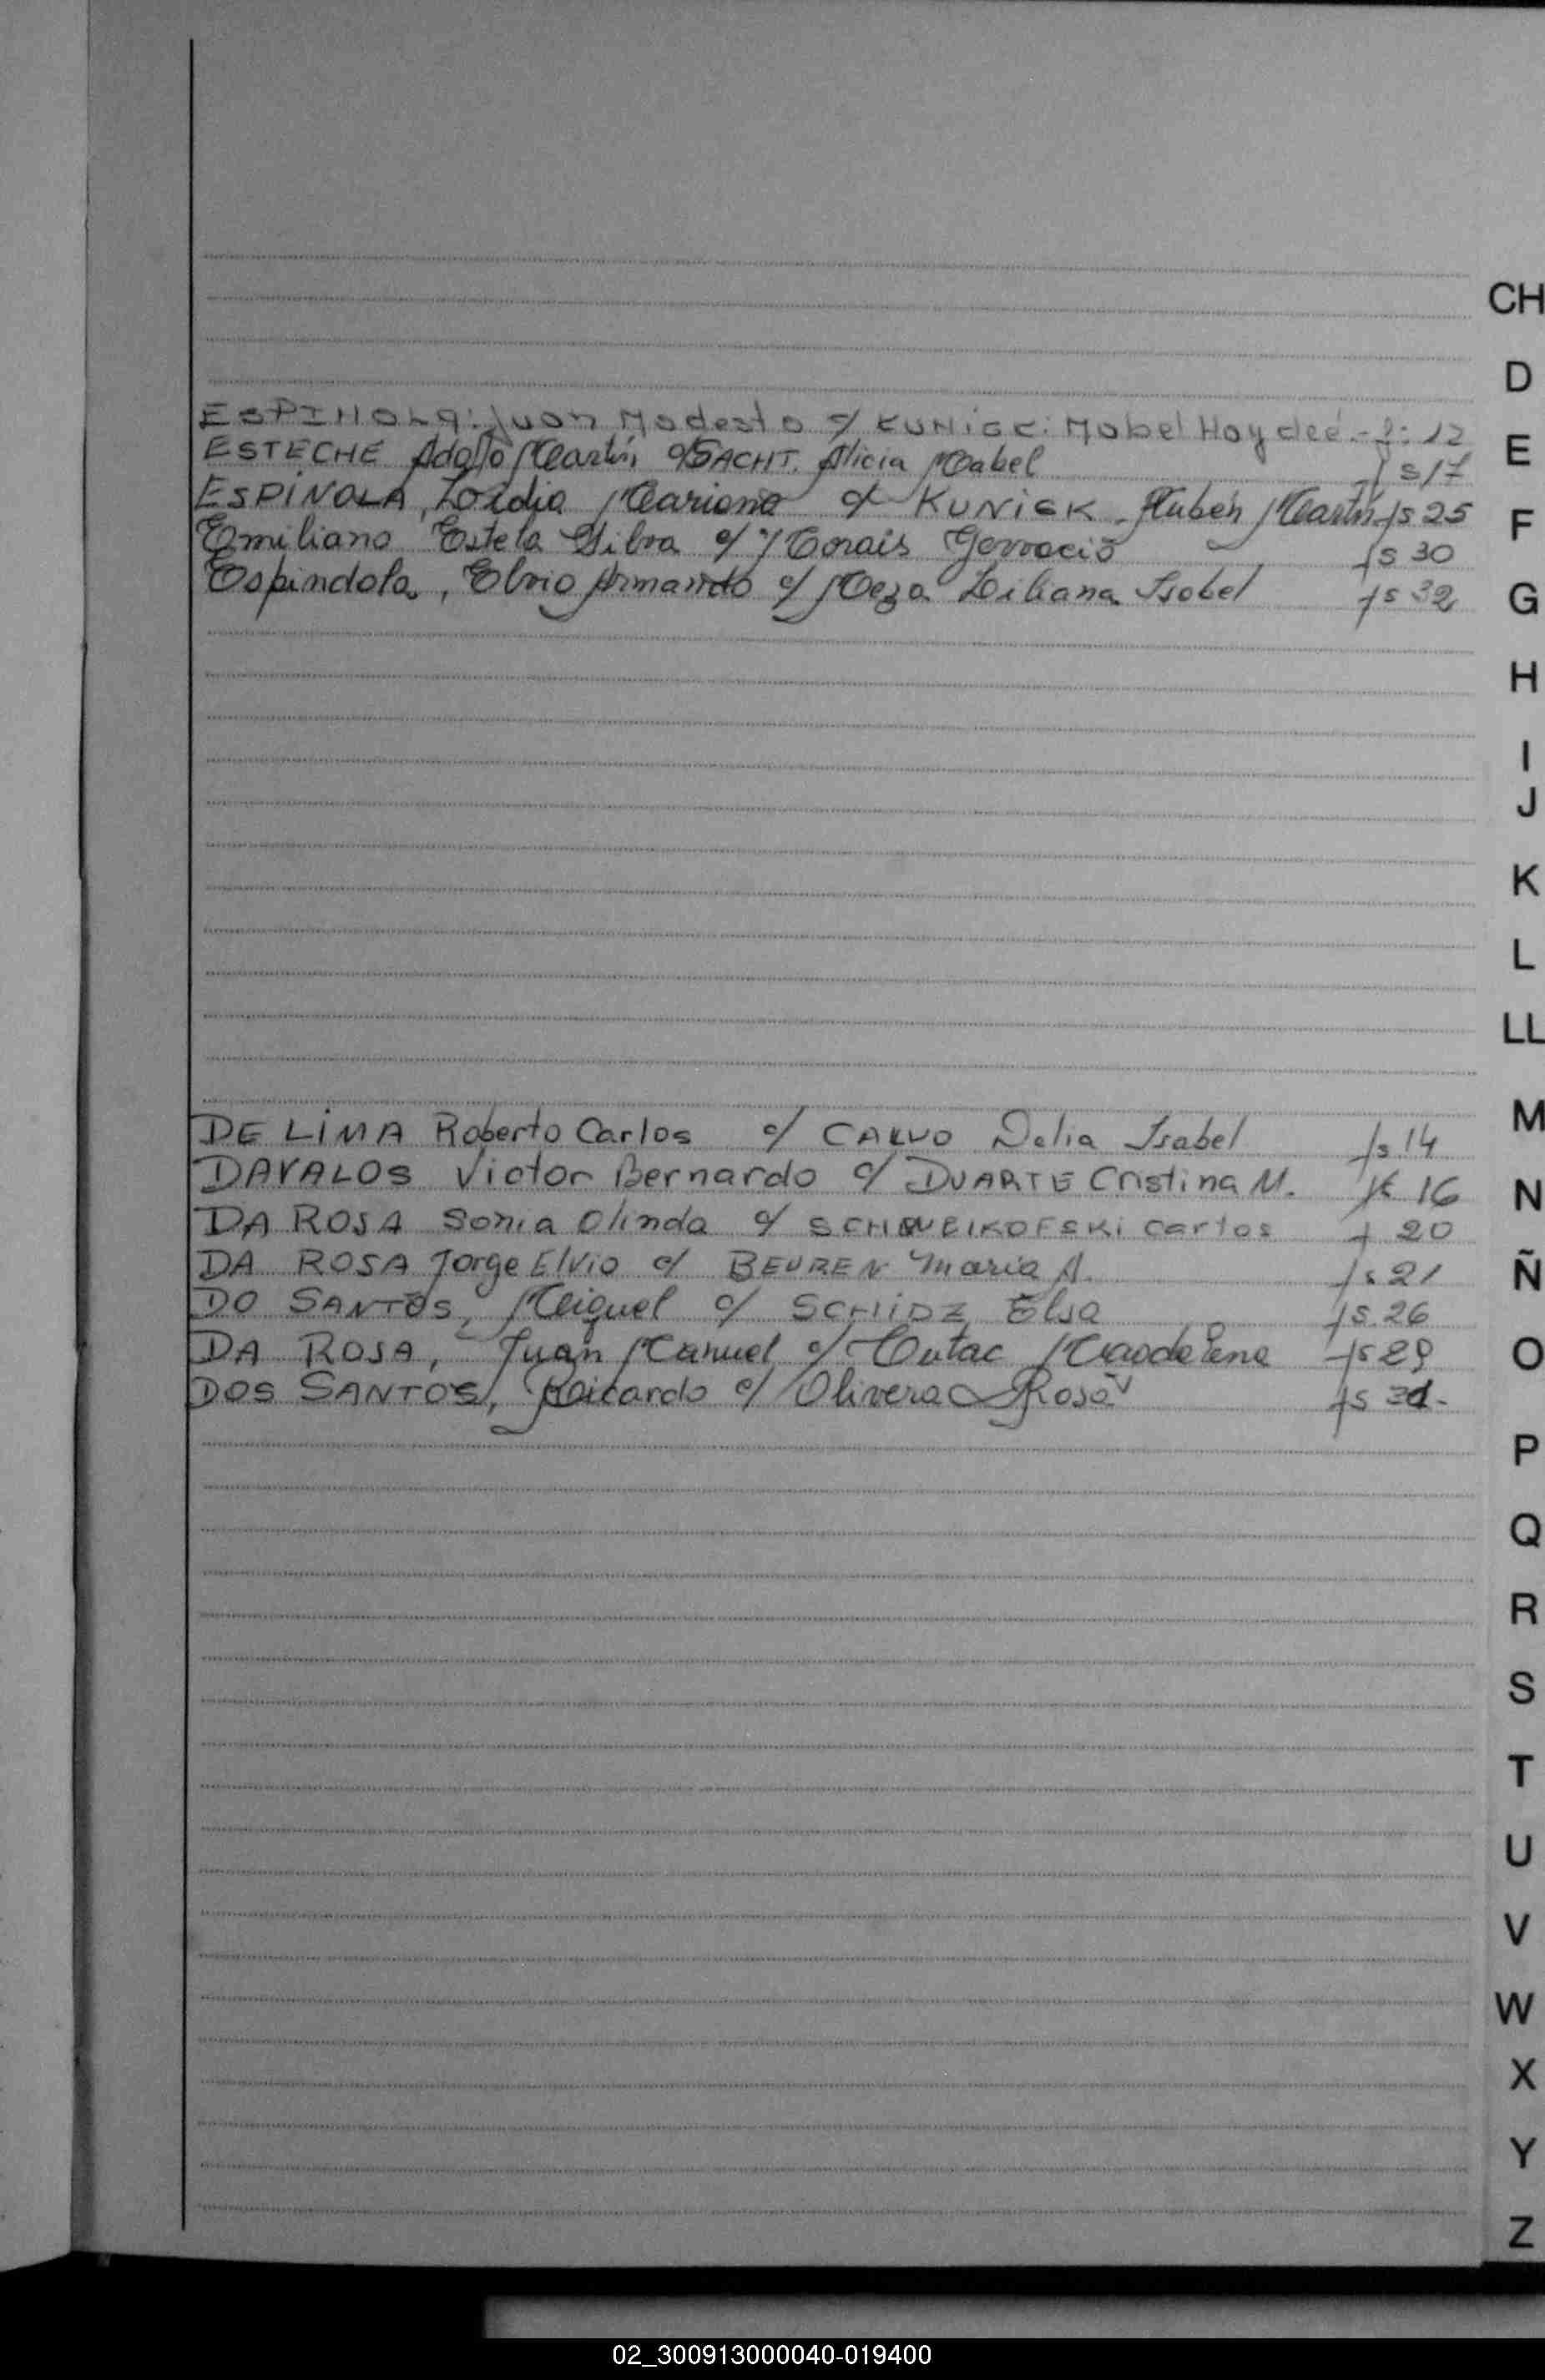 ESPINOLA: Juan Modesto c/ KUNIGK: Mabel Haydeé.- f: 12
ESTECHE Adolfo Martín c/ SACHT. Alicia Mabel fs 17
ESPÍNOLA, Mariana c/ KUNIGK. Rubén Martín fs 25
Emiliano Estela c/ Morais Gervacio fs 30
Espindola, Elvio Armando c/ Meza Liliana Isabel fs 32
DE LIMA Roberto Carlos c/ CALVO Delia Isabel fs 14
DAVALOS Victor Bernardo c/ DUARTE Cristina M. 16
DA ROSA Sonia Olinda c/ Carlos f 20
DA ROSA Jorge Elvio c/ BEUREN Maria A. fs 21
DO SANTOS, Miguel c/ SCHIDZ Elsa fs. 26
DA ROSA, Juan Manuel c/ Magdalena fs 29
DOS SANTOS, Ricardo c/ Olivera Rosa fs 31-
CH
D
E
F
G
H
I
J
K
L
LL
M
N
Ñ
O
P
Q
R
S
T
U
V
W
X
Y
Z
02_300913000040-019400